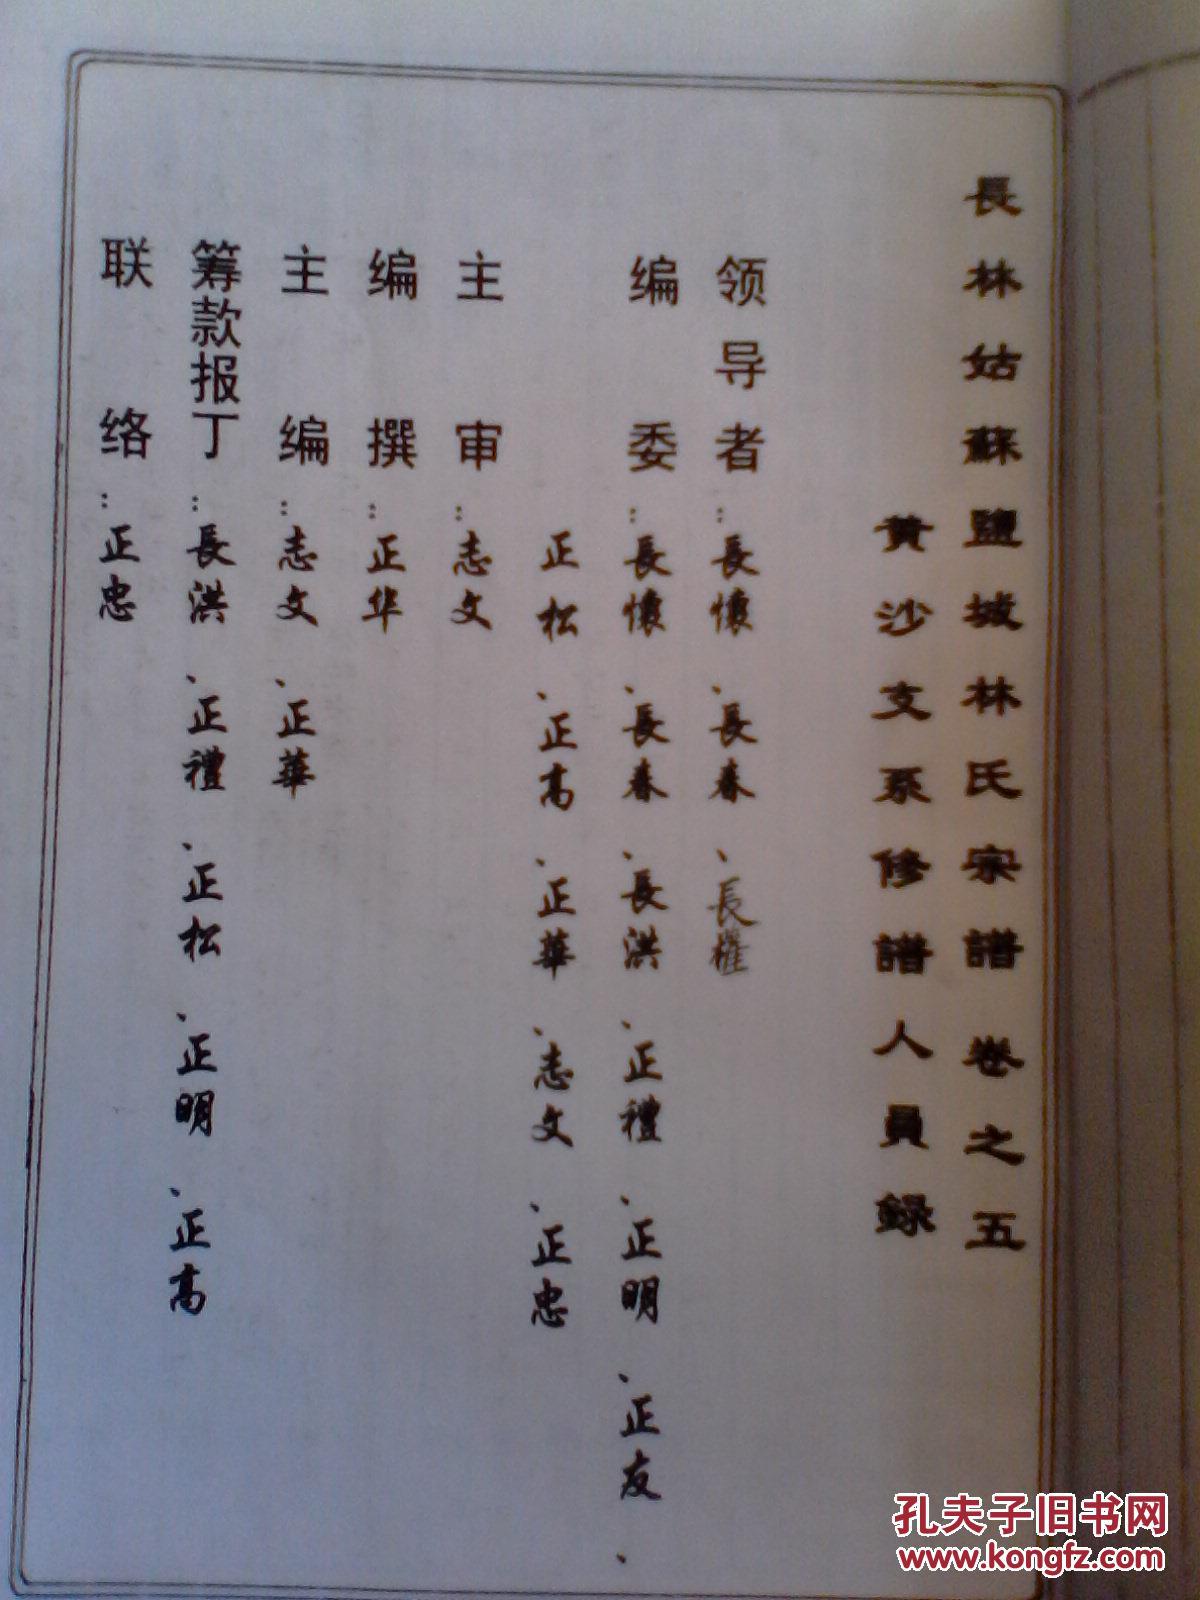 長林姑蘇鹽城林氏宗譜卷之五
黄沙支系修譜人員録
领导者：長懷、長春、長權
编委：長懷、長春、長洪、正禮、正明、正友、
正松、正高、正華、志文、正忠
主审：志文
编撰：正华
主编：志文、正華
筹款报丁：長洪、正禮、正松、正明、正高
联络：正忠
孔夫子旧书网
www.kongfz.com